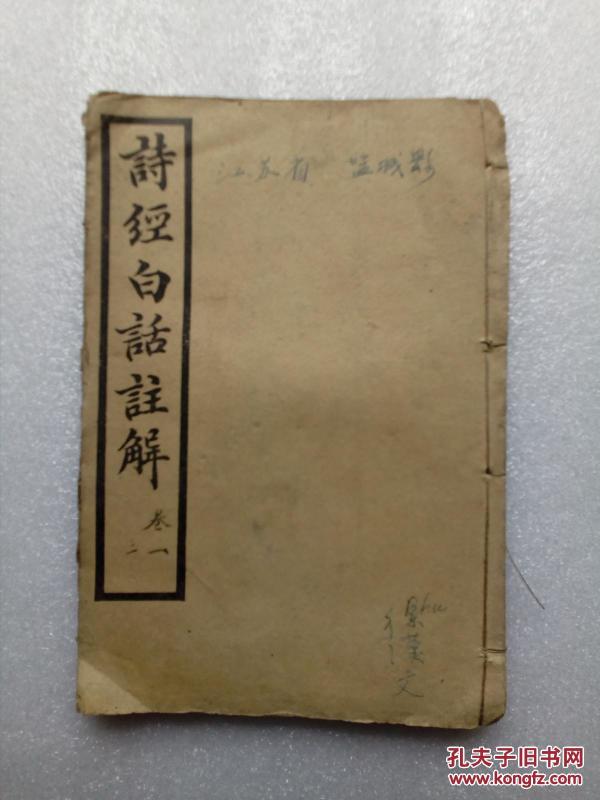 詩經白話註解
卷一
二
江苏省 盐城县
文
孔夫子旧书网
www.kongfz.com